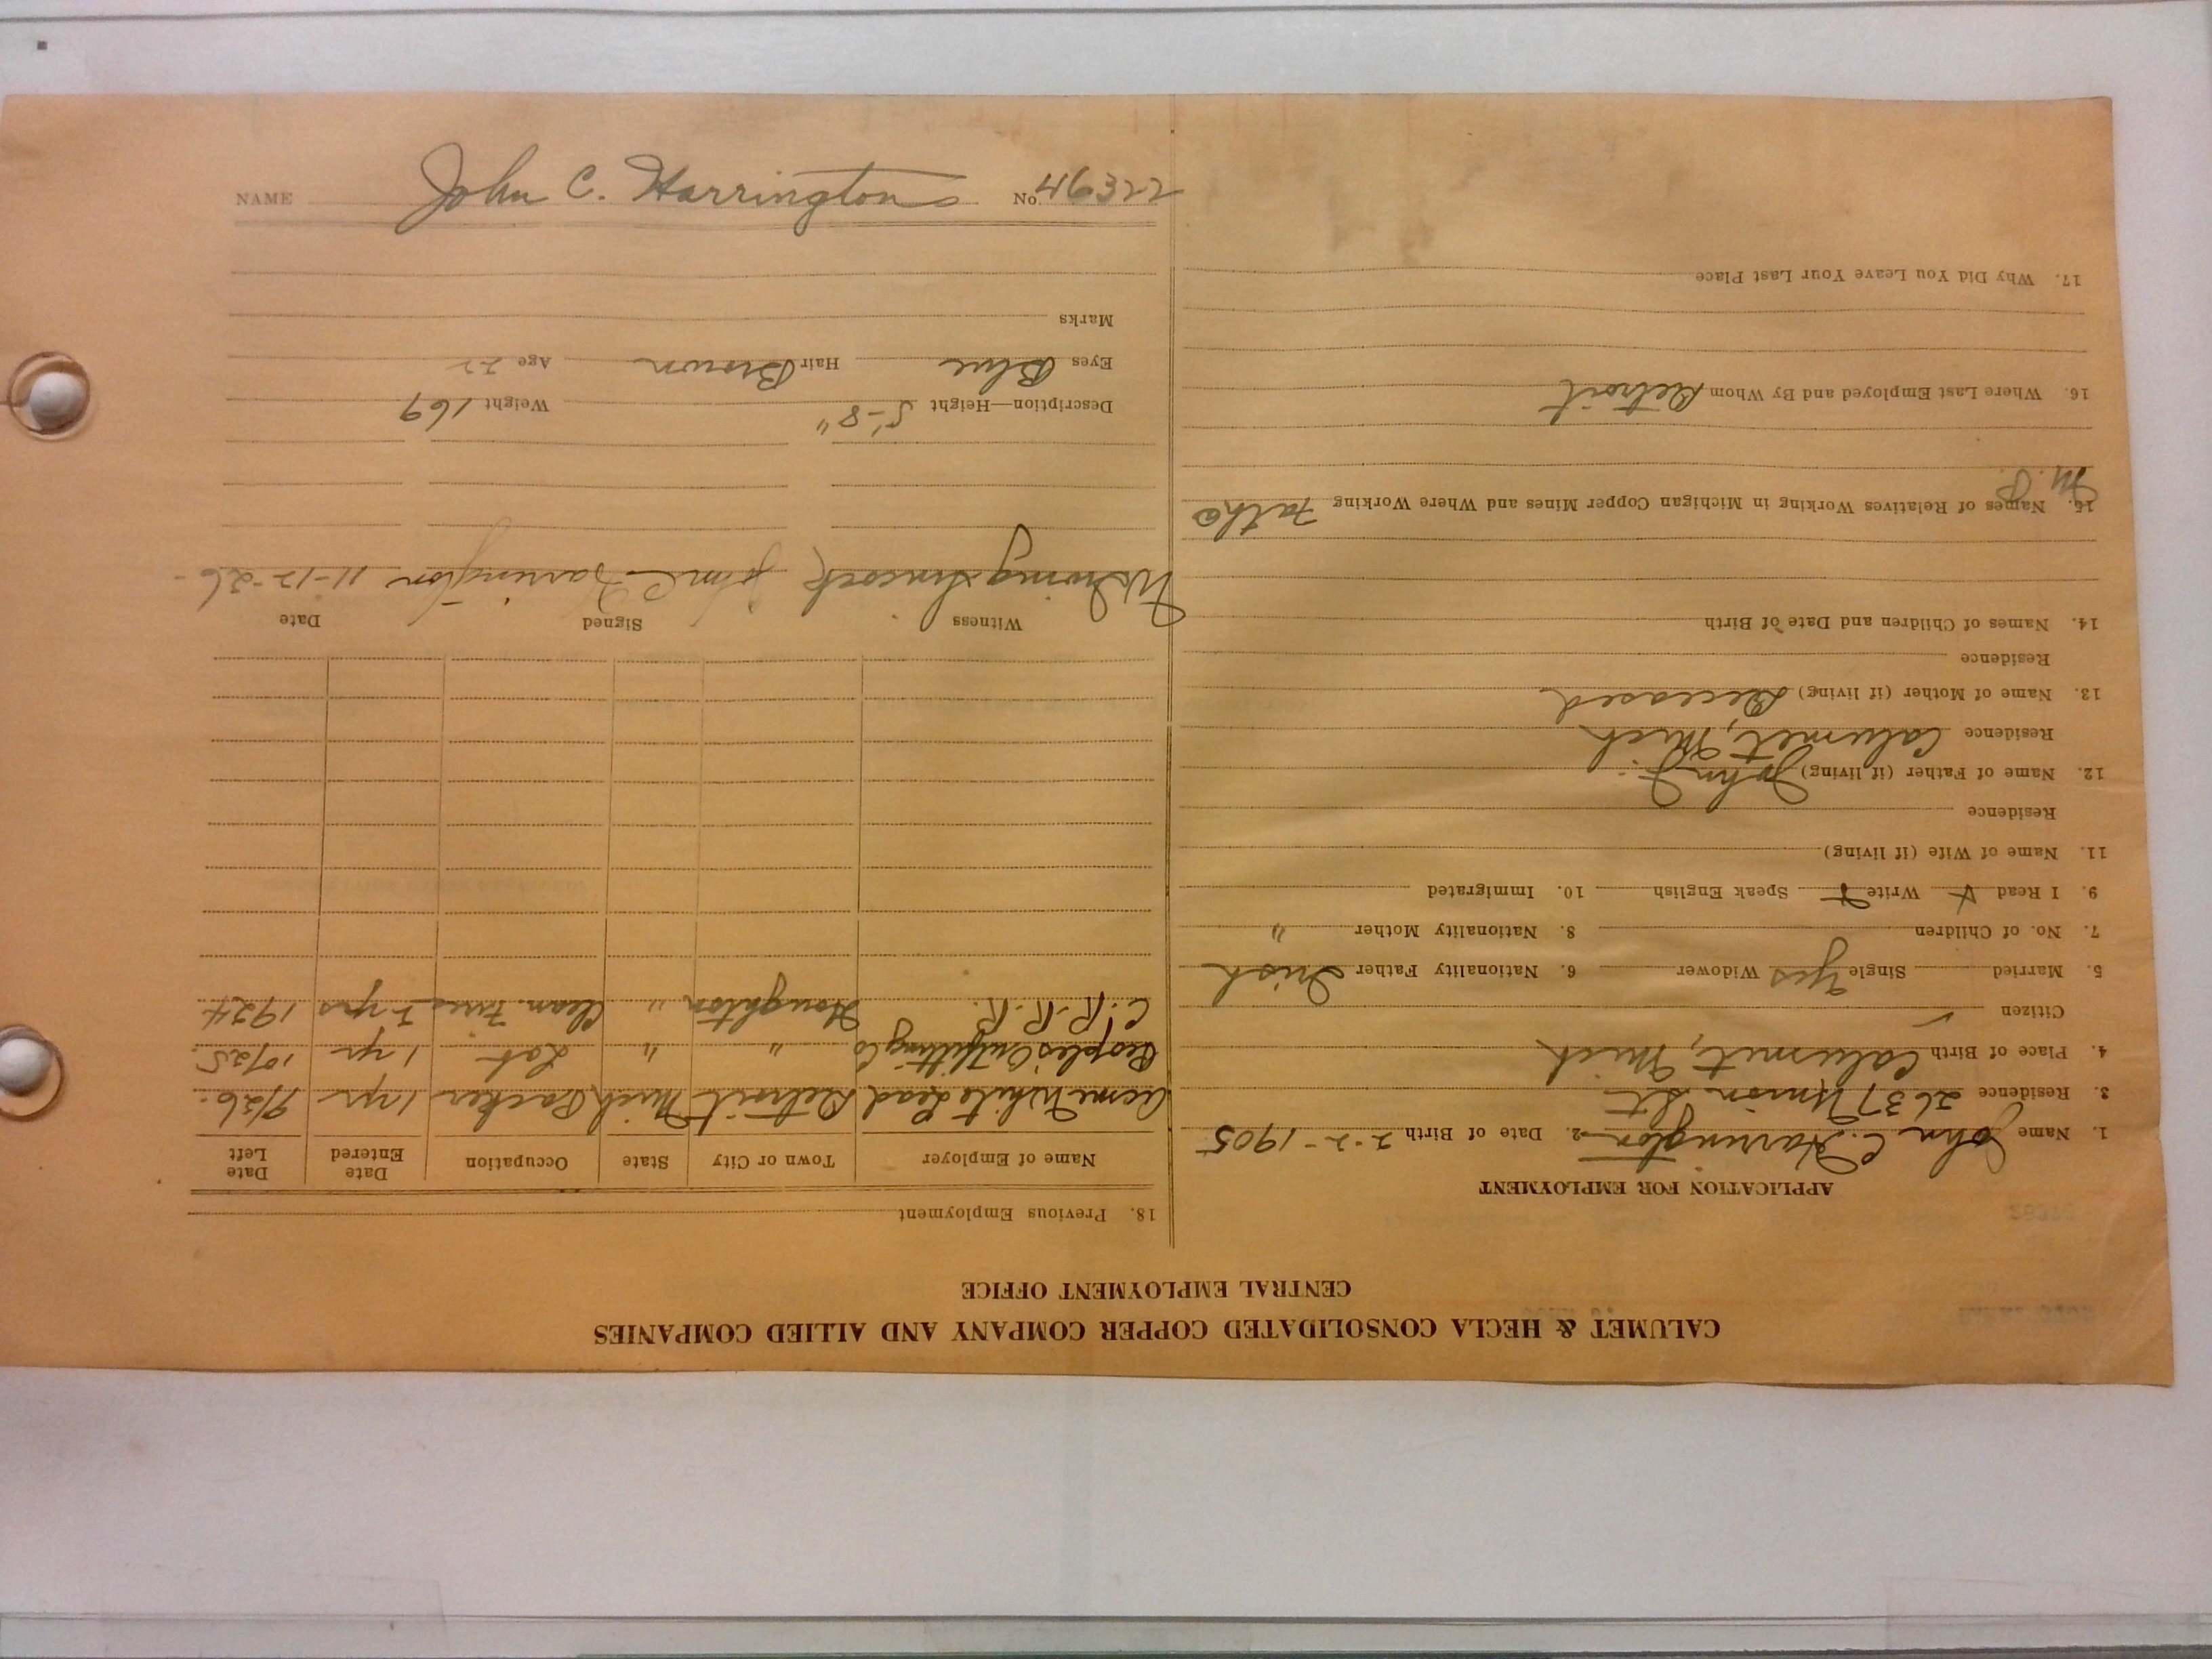 CALUMET & HECLA CONSOLIDATED COPPER COMPANY AND ALLIED COMPANIES
CENTRAL EMPLOYMENT OFFICE
APPLICATION FOR EMPLOYMENT
1. Name John C. Harrington 2. Date of Birth 2-2-1905
3. Residence 2637 Union St
4. Place of Birth Calumet, Mich
Citizen ✓
5. Married Single Yes Widower 6. Nationality Father Irish
7. No. of Children 8. Nationality Mother "
9. I Read Write Speak English 10. Immigrated
11. Name of Wife (if living)
Residence
12. Name of Father (if living) John F.
Residence Calumet, Mich
13. Name of Mother (if living) Deceased
Residence
14. Names of Children and Date of Birth
15. Names of Relatives Working in Michigan Copper Mines and Where Working Father
16. Where Last Employed and By Whom Detroit
17. Why Did You Leave Your Last Place
18. Previous Employment
Name of Employer Town or City State Occupation Date Entered Date Left
Acme White Lead Detroit Mich Packer 1 yr 9/26.
Peoples Outfitting Co " " Lab 1 yr 10/25.
C.R.R.R. Houghton " Clean. Fires 2 yrs 1924
Witness Signed Date
John C Harrington 11-12-26-
Description—Height 5'-8" Weight 169
Eyes Blue Hair Brown Age 22
Marks
NAME John C. Harrington No. 46322